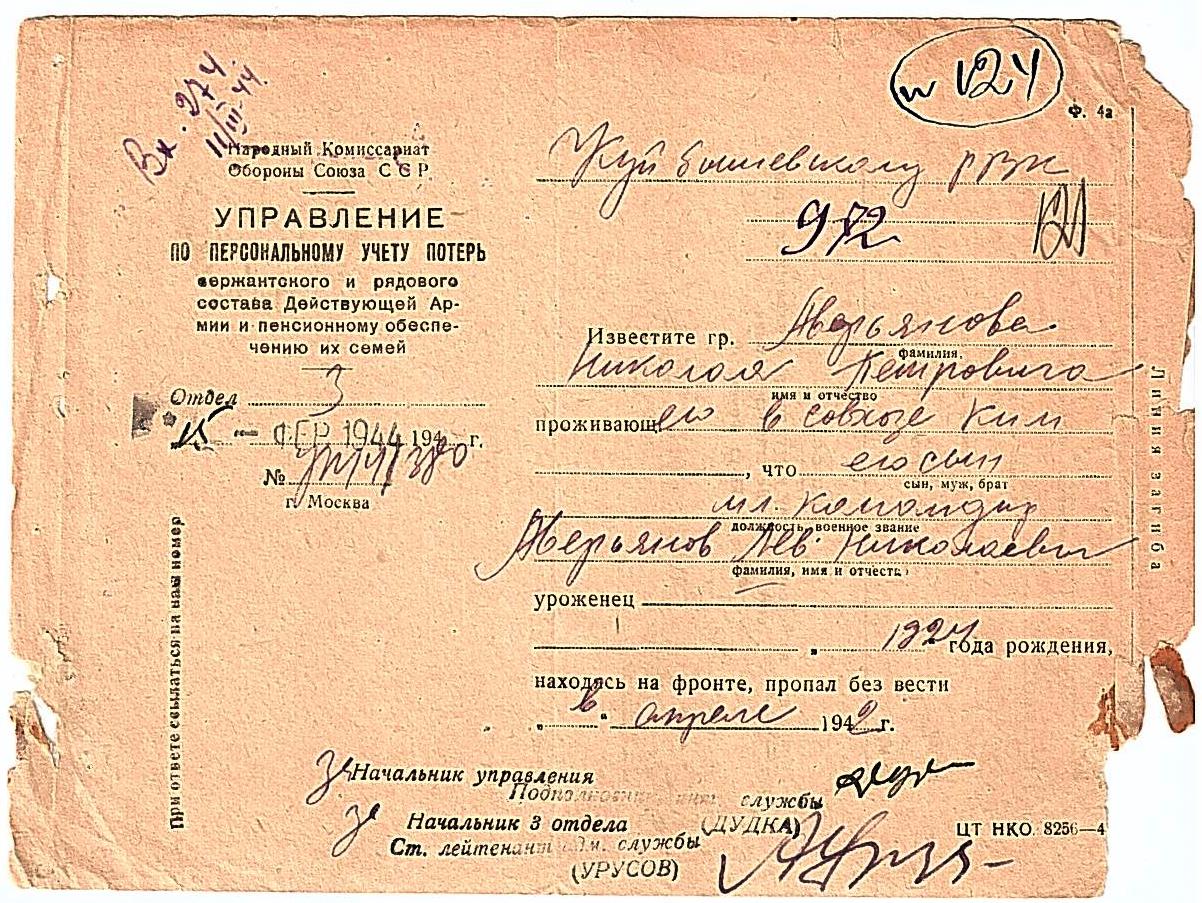 Вх. 274
11/III-44.
Народный Комиссариат
Обороны Союза ССР
УПРАВЛЕНИЕ
ПО ПЕРСОНАЛЬНОМУ УЧЕТУ ПОТЕРЬ
сержантского и рядового
состава Действующей Ар-
мии и пенсионному обеспе-
чению их семей
Отдел 3
15 - ФЕР 1944 194 г.
№
г. Москва
При ответе ссылаться на наш номер
124
Ф. 4а
Куйбышевскому РВК
972
121
Известите гр. Аверьянова
фамилия,
Николая Петровича
имя и отчество
проживающего в совхозе Ким
, что его сын
сын, муж, брат
мл. командир
должность, военное звание
Аверьянов Лев Николаевич
фамилия, имя и отчество
уроженец
1924 года рождения,
находясь на фронте, пропал без вести
„ в " апреле 1942 г.
Линия загиба
за Начальник управления
Подполковник службы
(ДУДКА)
за Начальник 3 отдела
Ст. лейтенант адм. службы
(УРУСОВ)
ЦТ НКО. 8256—4